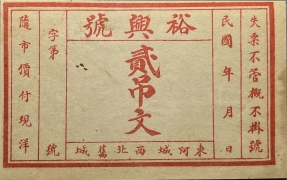 裕興號
失票不管概不掛號
民國 年 月 日
貳吊文
字第 號
隨市價付現洋
東阿城西北舊城